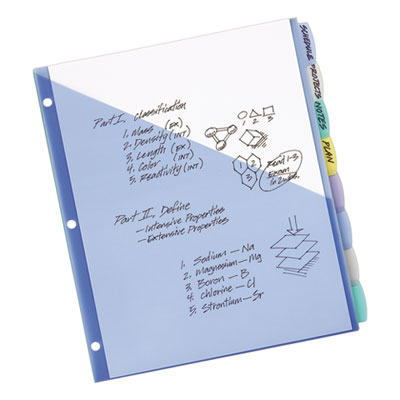 SCHEDULE
PROJECTS
NOTES
PLAN
Part I, Classification
1. Mass (EX)
2. Density (INT)
3. Length (EX)
4. Color (INT)
5. Reactivity (INT)
1 2 3
1 2
3
Read 1-3
Exam
in 2 weeks
Part II, Define
- Intensive Properties
- Extensive Properties
1. Sodium — Na
2. Magnesium — Mg
3. Boron — B
4. Chlorine — Cl
5. Strontium — Sr